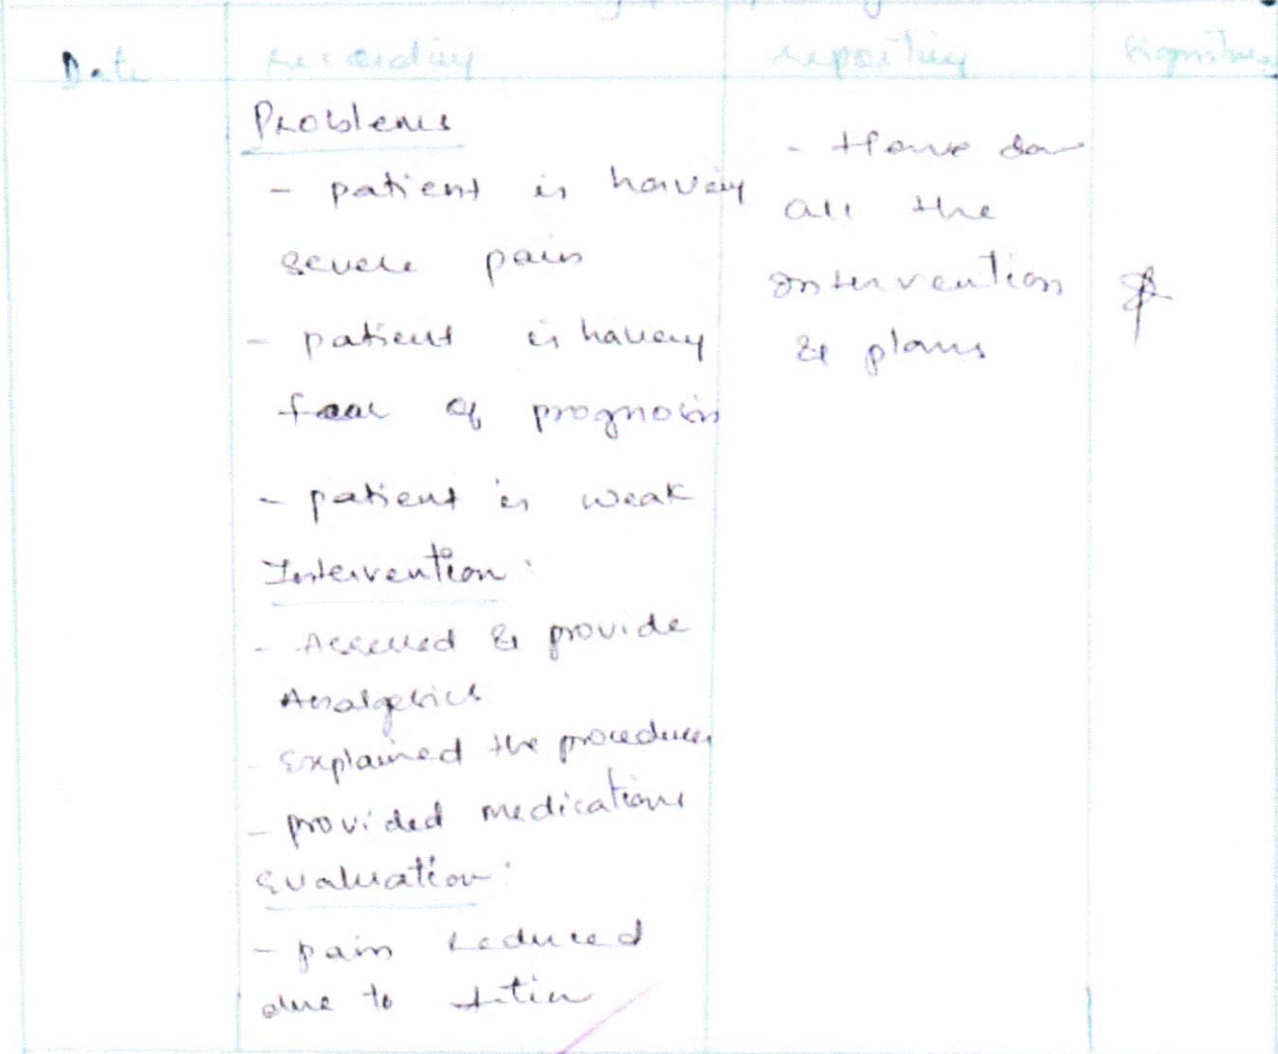 Date recording reporting Signature
Problems
- patient is having
severe pain
- patient is having
fear of prognosis
- patient is weak
Intervention :
- Assessed & provide
Analgesics
- Explained the procedures
- provided medications
Evaluation :
- pain reduced
due to
- Have
all the
Intervention
& plans